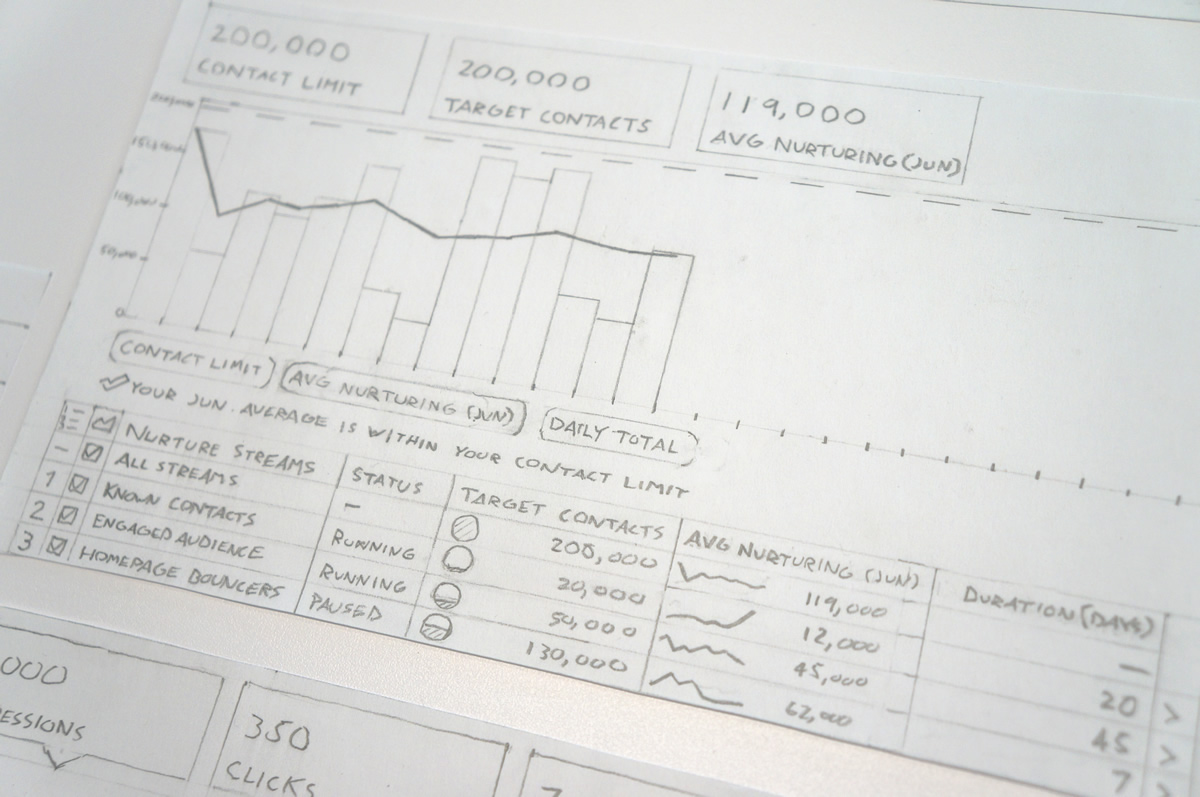 200,000
CONTACT LIMIT
200,000
TARGET CONTACTS
119,000
AVG NURTURING (JUN)
200,000
100,000
50,000
0
CONTACT LIMIT
AVG NURTURING (JUN)
DAILY TOTAL
YOUR JUN. AVERAGE IS WITHIN YOUR CONTACT LIMIT
NURTURE STREAMS STATUS TARGET CONTACTS AVG NURTURING (JUN) DURATION (DAYS)
— ALL STREAMS — 200,000 119,000 —
1 KNOWN CONTACTS RUNNING 20,000 12,000 20 >
2 ENGAGED AUDIENCE RUNNING 50,000 45,000 45 >
3 HOMEPAGE BOUNCERS PAUSED 130,000 62,000 7 >
000
ESSIONS
350
CLICKS